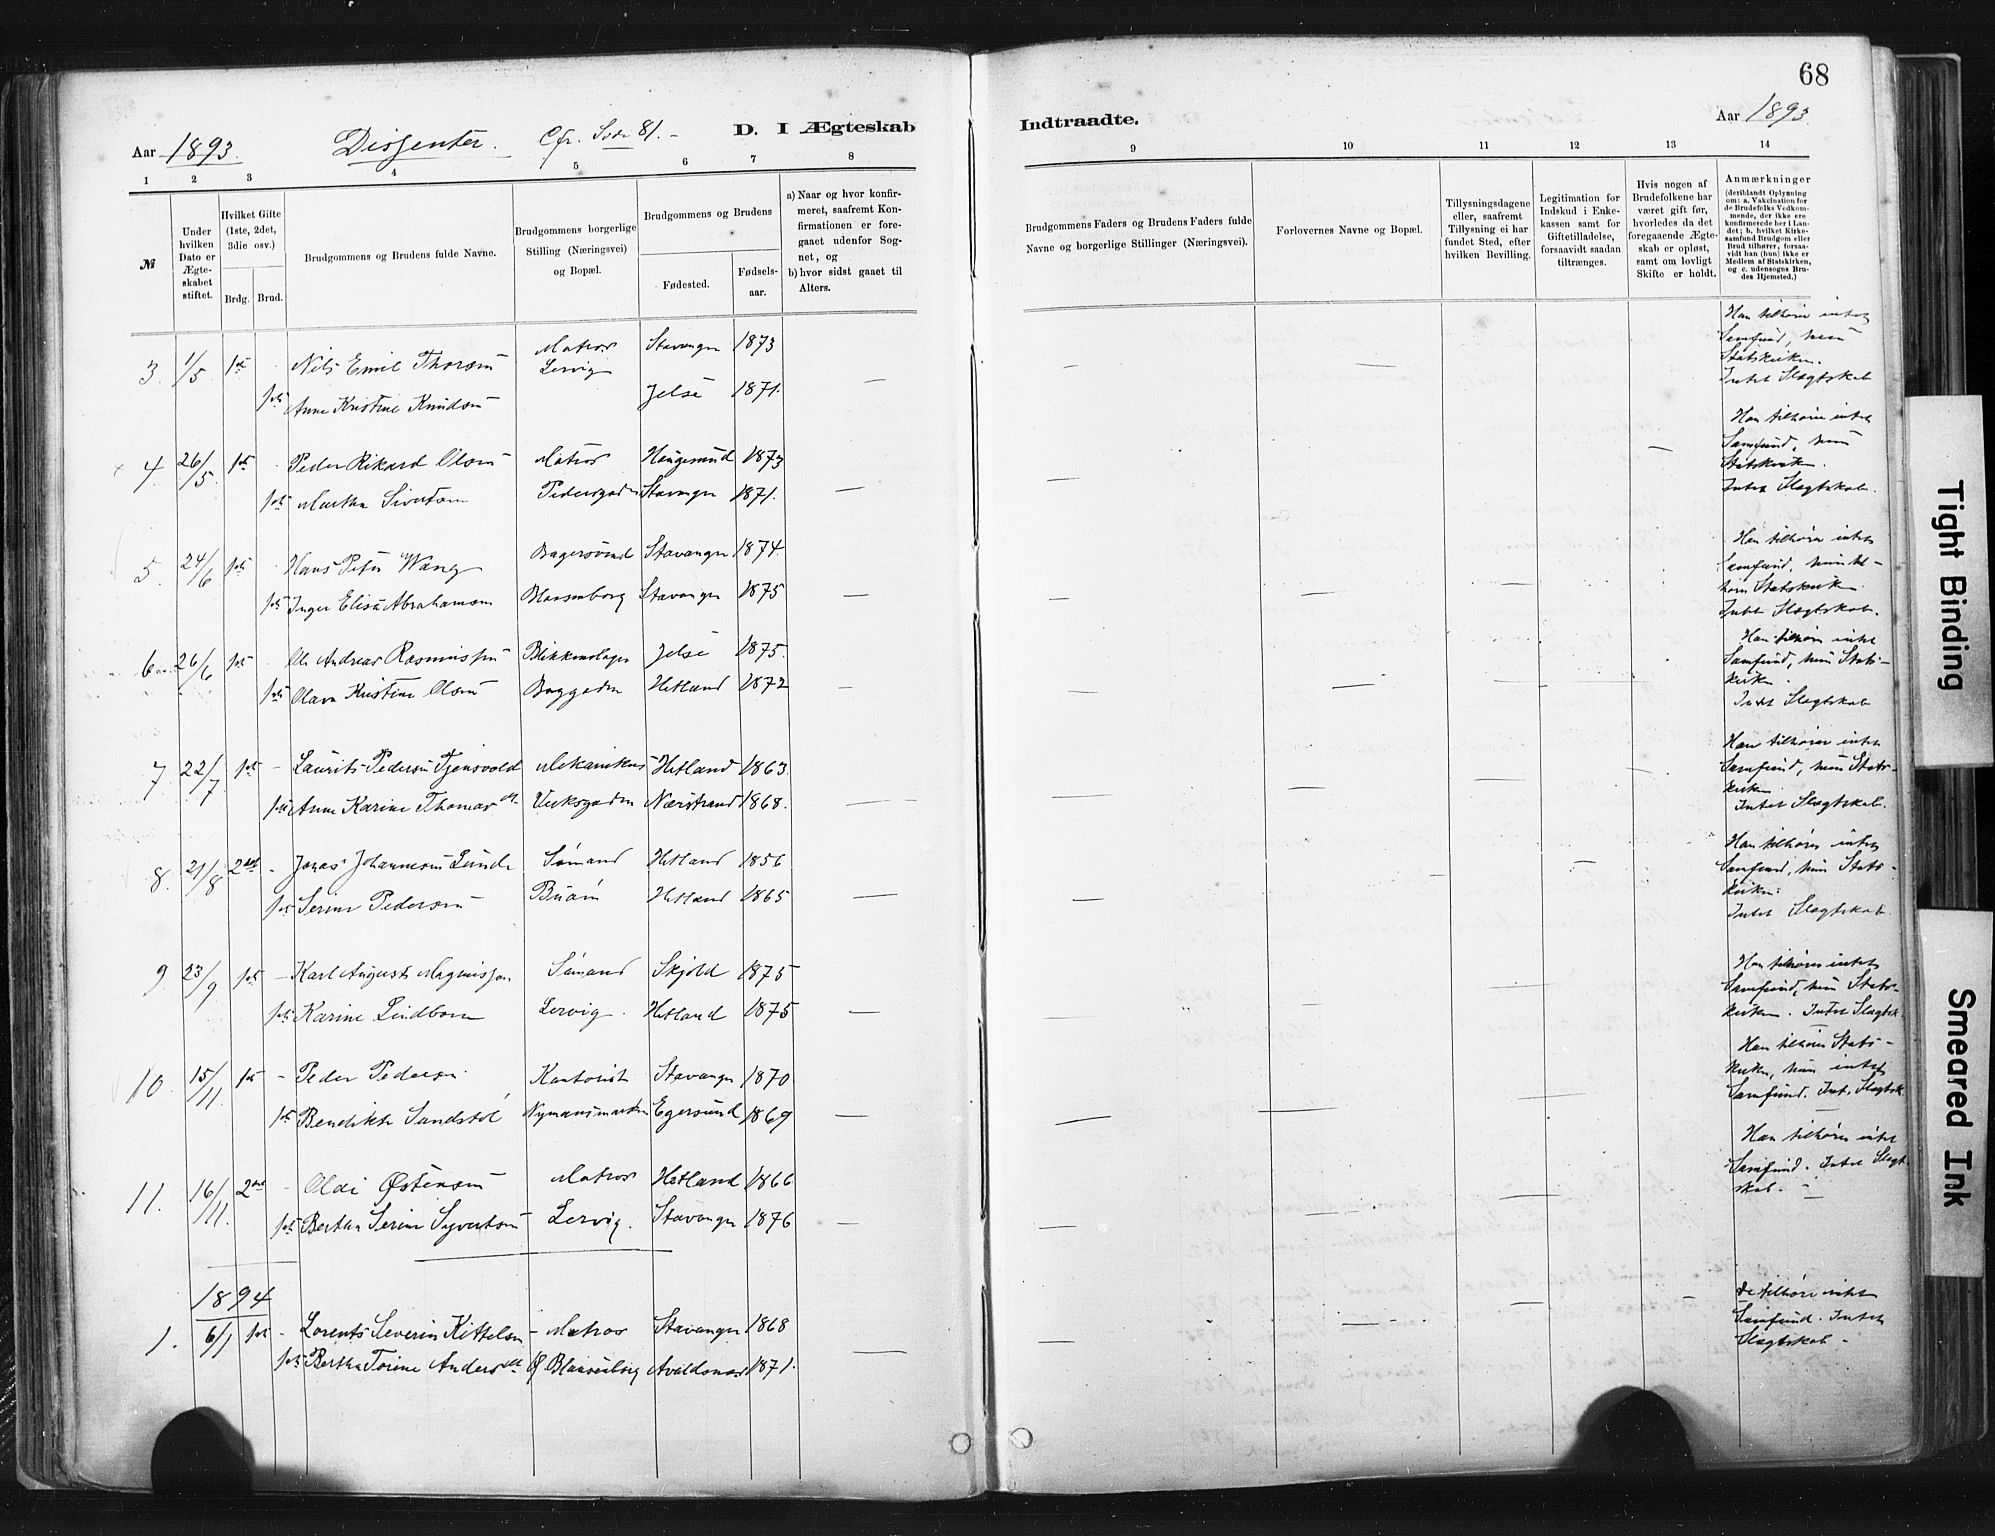 68
Aar 1893. Dissenter. Cfr. Side 81. — D. I Ægteskab
Indtraadte. Aar 1893.
1 2 3 4 5 6 7 8
9 10 11 12 13 14
№
Under hvilken Dato er Ægteskabet stiftet.
Hvilket Gifte (1ste, 2det, 3die osv.)
Brdg. Brud.
Brudgommens og Brudens fulde Navne.
Brudgommens borgerlige Stilling (Næringsvei) og Bopæl.
Brudgommens og Brudens
Fødested.
Fødselsaar.
a) Naar og hvor konfirmeret, saafremt Konfirmationen er foregaaet udenfor Sognet, og
b) hvor sidst gaaet til Alters.
Brudgommens Faders og Brudens Faders fulde Navne og borgerlige Stillinger (Næringsvei).
Forlovernes Navne og Bopæl.
Tillysningsdagene eller, saafremt Tillysning ei har fundet Sted, efter hvilken Bevilling.
Legitimation for Indskud i Enkekassen samt for Giftetilladelse, forsaavidt saadan tiltrænges.
Hvis nogen af Brudefolkene har været gift før, hvorledes da det foregaaende Ægteskab er opløst, samt om lovligt Skifte er holdt.
Anmærkninger
(deriblandt Oplysning om: a. Vakcination for de Brudefolks Vedkommende, der ikke ere konfirmerede her i Landet; b. hvilket Kirkesamfund Brudgom eller Brud tilhører, forsaavidt han (hun) ikke er Medlem af Statskirken, og c. udensogns Brudes Hjemsted.)
3. 1/5. 1ste - Nils Emil Thorsen Matros Stavanger 1873
Lervig
1ste Anne Kristine Knudsen Jelse 1871.
Han tilhører intet
Samfund, hun
Statskirken.
Intet Slægtskab
4. 26/5. 1ste - Peder Rikard Olsen Matros Haugesund 1873
1ste Martha Sivertsen Pedersgaden Stavanger 1871.
Han tilhører intet
Samfund, hun
Statskirken.
Intet Slægtskab.
5. 24/6 1ste - Hans Peter Wang Bagersvend Stavanger 1874.
1ste Inger Elise Abrahamsen Blaasenborg Stavanger 1875
Han tilhører intet
Samfund, hun til-
hører Statskirken
Intet Slægtskab.
6. 26/6 1ste - Ole Andreas Rasmussen Blikkenslager Jelse 1875.
1ste Olava Kristine Olsen Bakgaden Hetland 1872
Han tilhører intet
Samfund, hun Stats-
kirken.
Intet Slægtskab
7 22/7 1ste - Laurits Pedersen Tjensvold Mekanikus Hetland 1863.
1ste Anne Karine Thomasdtr. Verksgaden Nærstrand 1868.
Han tilhører intet
Samfund, hun Stats-
kirken
Intet Slægtskab.
8. 21/8 2det - Jonas Johannesen Lunde Sømand Hetland 1856
1ste Serine Pedersen Buøen Hetland 1865
Han tilhører intet
Samfund, hun Stats-
kirken.
Intet Slægtskab.
9 23/9 1ste - Karl August Magnussen Sømand Skjold 1875
1ste Karine Lindbom Lervig. Hetland 1875
Han tilhører intet
Samfund, hun Stats-
kirken. Intet Slægtsk.
10. 15/11. 1ste - Peder Pedersen Kontorist Stavanger 1870
1ste Bendikte Sandstøl Nymansmarken Egersund 1869
Han tilhører Stats-
kirken, hun intet
Samfund. Int. Slægtsk.
11. 16/11. 2det - Olai Østensen Matros Hetland 1866
1ste Bertha Serine Syvertsen Lervig. Stavanger 1876
Han tilhører intet
Samfund. Intet Slægt-
skab. -
1894
1. 6/1 1ste - Lorents Severin Kittelsen - Matros Stavanger 1868
1ste Bertha Torine Andersdtr Ø Blaasenborg Avaldsnæs 1871.
De tilhøre intet
Samfund. Intet
Slægtskab -
Tight Binding
Smeared Ink